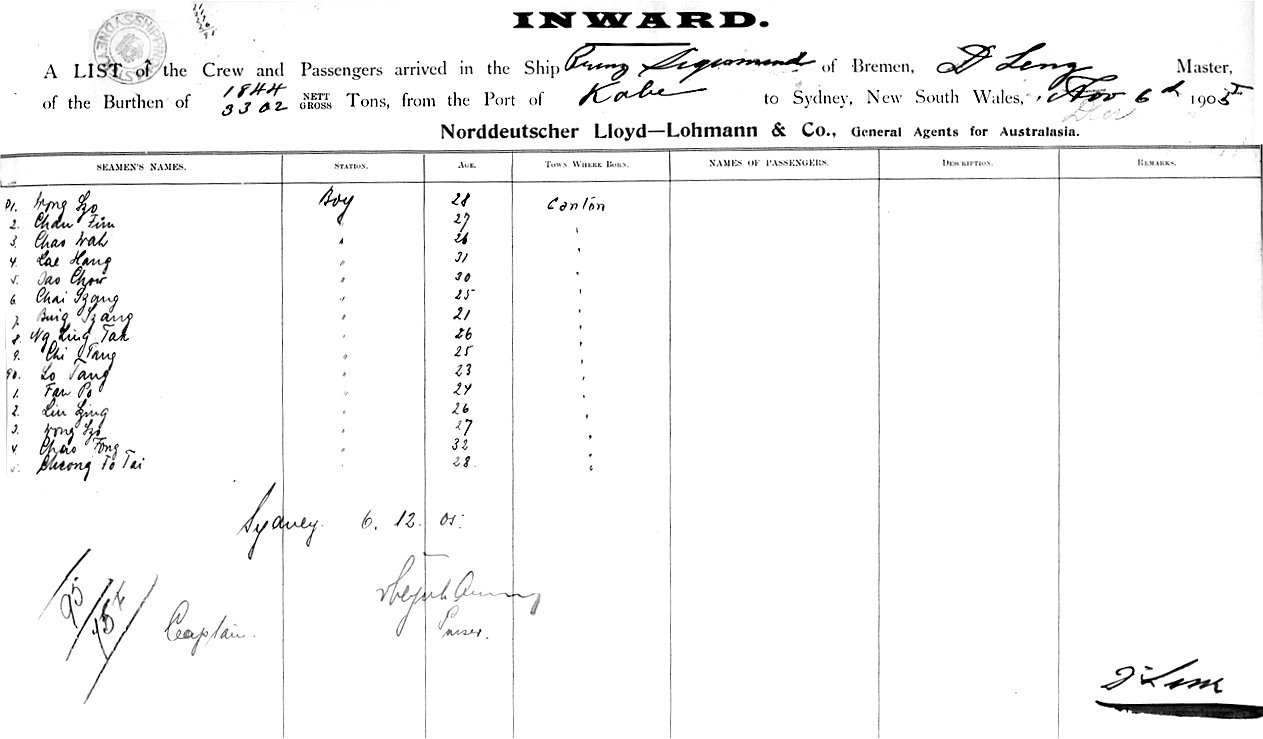 INWARD.
A LIST of the Crew and Passengers arrived in the Ship Prinz Sigismund of Bremen, D Lenz Master,
of the Burthen of 1844 3302 NETT GROSS Tons, from the Port of Kobe to Sydney, New South Wales, Nov 6th 1905
Dec
Norddeutscher Lloyd—Lohmann & Co., General Agents for Australasia.
SEAMEN'S NAMES. STATION. AGE. TOWN WHERE BORN. NAMES OF PASSENGERS. DESCRIPTION. REMARKS.
81. Wong Szo Boy 28 Canton
2. Chan Fim " 27 "
3. Chao Wah " 26 "
4. Lae Hang " 31 "
5. Dao Chow " 30 "
6. Chai Szang " 25 "
7. Bing Szang " 21 "
8. Ng Ling Tak " 26 "
9. Chi Tang " 25 "
90. Lo Tang " 23 "
1. Fan Po " 24 "
2. Lin Sjing " 26 "
3. Wong Szo " 27 "
4. Chao Fong " 32 "
5. Cheong To Tai " 28 "
Sydney. 6. 12. 05.
95
Captain. Purser.
D Lenz